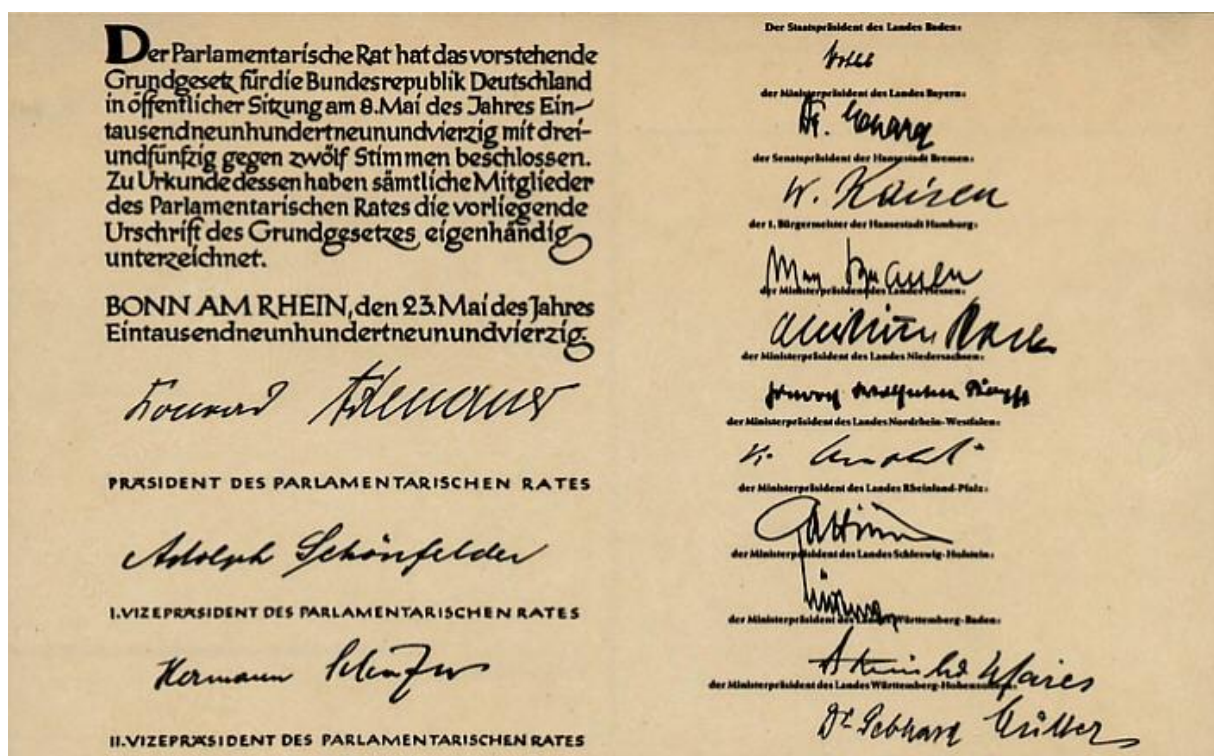 Der Parlamentarische Rat hat das vorstehende
Grundgesetz für die Bundesrepublik Deutschland
in öffentlicher Sitzung am 8. Mai des Jahres Ein-
tausendneunhundertneunundvierzig mit drei-
undfünfzig gegen zwölf Stimmen beschlossen.
Zu Urkunde dessen haben sämtliche Mitglieder
des Parlamentarischen Rates die vorliegende
Urschrift des Grundgesetzes eigenhändig
unterzeichnet.
BONN AM RHEIN, den 23. Mai des Jahres
Eintausendneunhundertneunundvierzig.
Konrad Adenauer
PRÄSIDENT DES PARLAMENTARISCHEN RATES
Adolph Schönfelder
I. VIZEPRÄSIDENT DES PARLAMENTARISCHEN RATES
Hermann Schäfer
II. VIZEPRÄSIDENT DES PARLAMENTARISCHEN RATES
Der Staatspräsident des Landes Baden:
der Ministerpräsident des Landes Bayern:
Dr. Ehard
der Senatspräsident der Hansestadt Bremen:
W. Kaisen
der 1. Bürgermeister der Hansestadt Hamburg:
Max Brauer
der Ministerpräsident des Landes Hessen:
der Ministerpräsident des Landes Niedersachsen:
der Ministerpräsident des Landes Nordrhein-Westfalen:
K. Arnold
der Ministerpräsident des Landes Rheinland-Pfalz:
Altmeier
der Ministerpräsident des Landes Schleswig-Holstein:
der Ministerpräsident des Landes Württemberg-Baden:
Reinhold Maier
der Ministerpräsident des Landes Württemberg-Hohenzollern:
Dr. Gebhard Müller